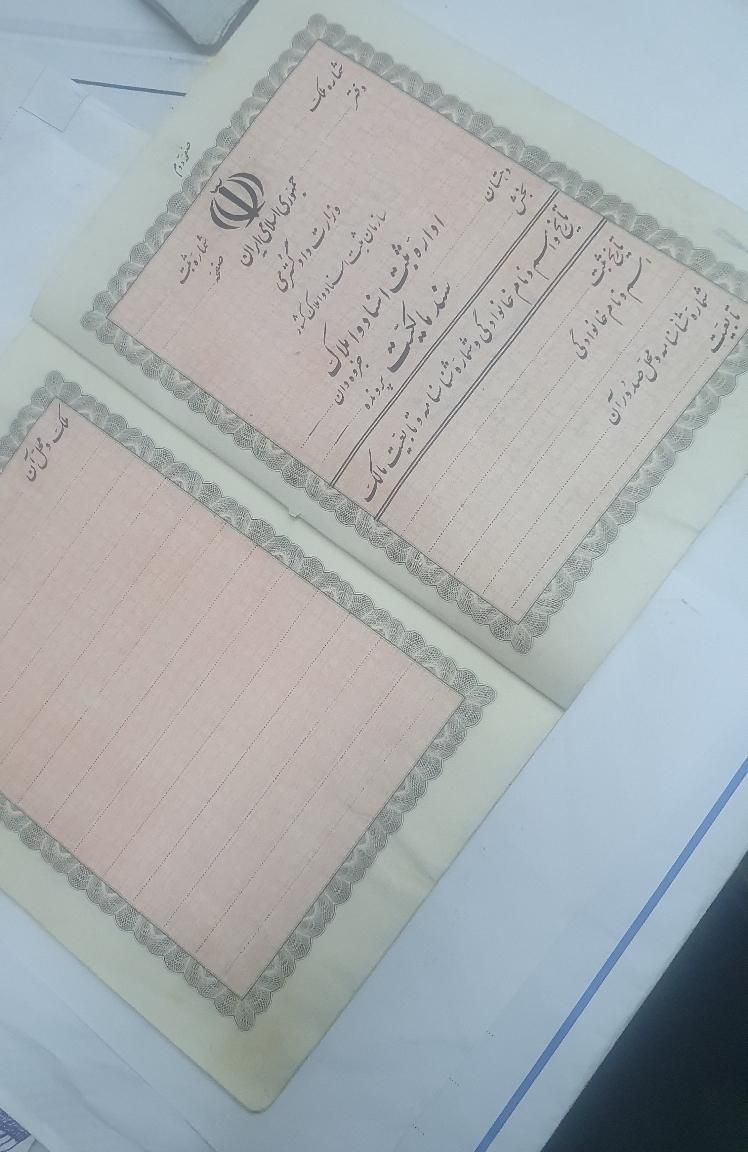 صفحه دوم
شماره ملک
دفتر
جمهوری اسلامی ایران
وزارت دادگستری
سازمان ثبت اسناد و املاک کشور
شماره ثبت
صفحه
اداره ثبت اسناد و املاک
دهستان
بخش
سند مالکیت
جزوه‌دان
پرونده
تاریخ و اسم و نام خانوادگی و شماره شناسنامه و تابعیت مالک
تاریخ ثبت
اسم و نام خانوادگی
شماره شناسنامه و محل صدور آن
تابعیت
ملک و محل آن